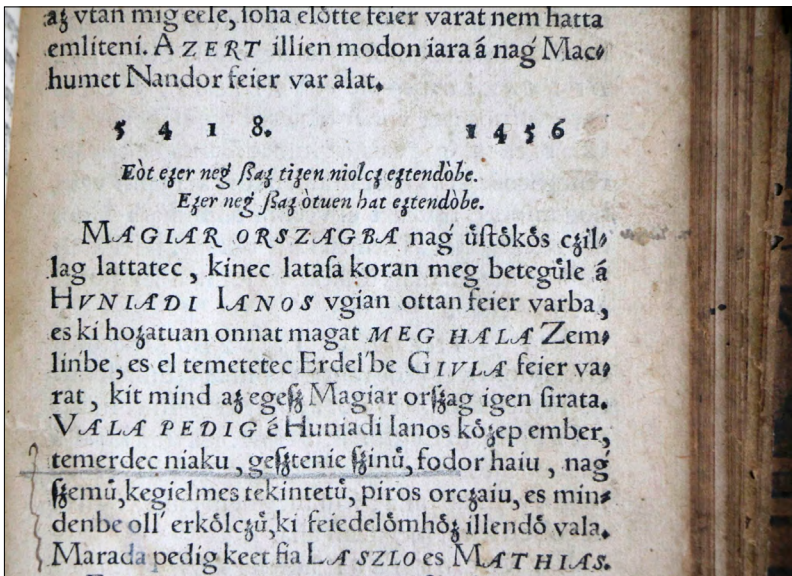 aʒ vtan mig eele, ſoha elòtte feier varat nem hatta
említeni. AZERT illien modon iara á nag´ Mac⸗
humet Nandor feier var alat.
5 4 1 8. 1 4 5 6
Eòt eʒer neg´ ſʒaʒ tiʒen niolcʒ eʒtendòbe.
Eʒer neg´ ſʒaʒ òtuen hat eʒtendòbe.
MAGIAR ORSZAGBA nag´ ů́ſtôkôs cʒil⸗
lag lattatec, kinec lataſa koran meg betegůle á
HVNIADI IANOS vgian ottan feier varba,
es ki hoʒatuan onnat magat MEG HALA Zem⸗
lin'be, es el temetetec Erdel'be GIVLA feier va⸗
rat, kit mind aʒ egeſʒ Magiar orſʒag igen ſirata.
VALA PEDIG é Huniadi Ianos kôʒep ember,
temerdec niaku, geſʒtenie ſʒinů, fodor haiu, nag´
ſʒemů, kegielmes tekintetů, piros orcʒaiu, es min⸗
denbe oll' erkôlcʒů, ki feiedelômhôʒ illendô vala.
Marada pedig keet fia LASZLO es MATHIAS.